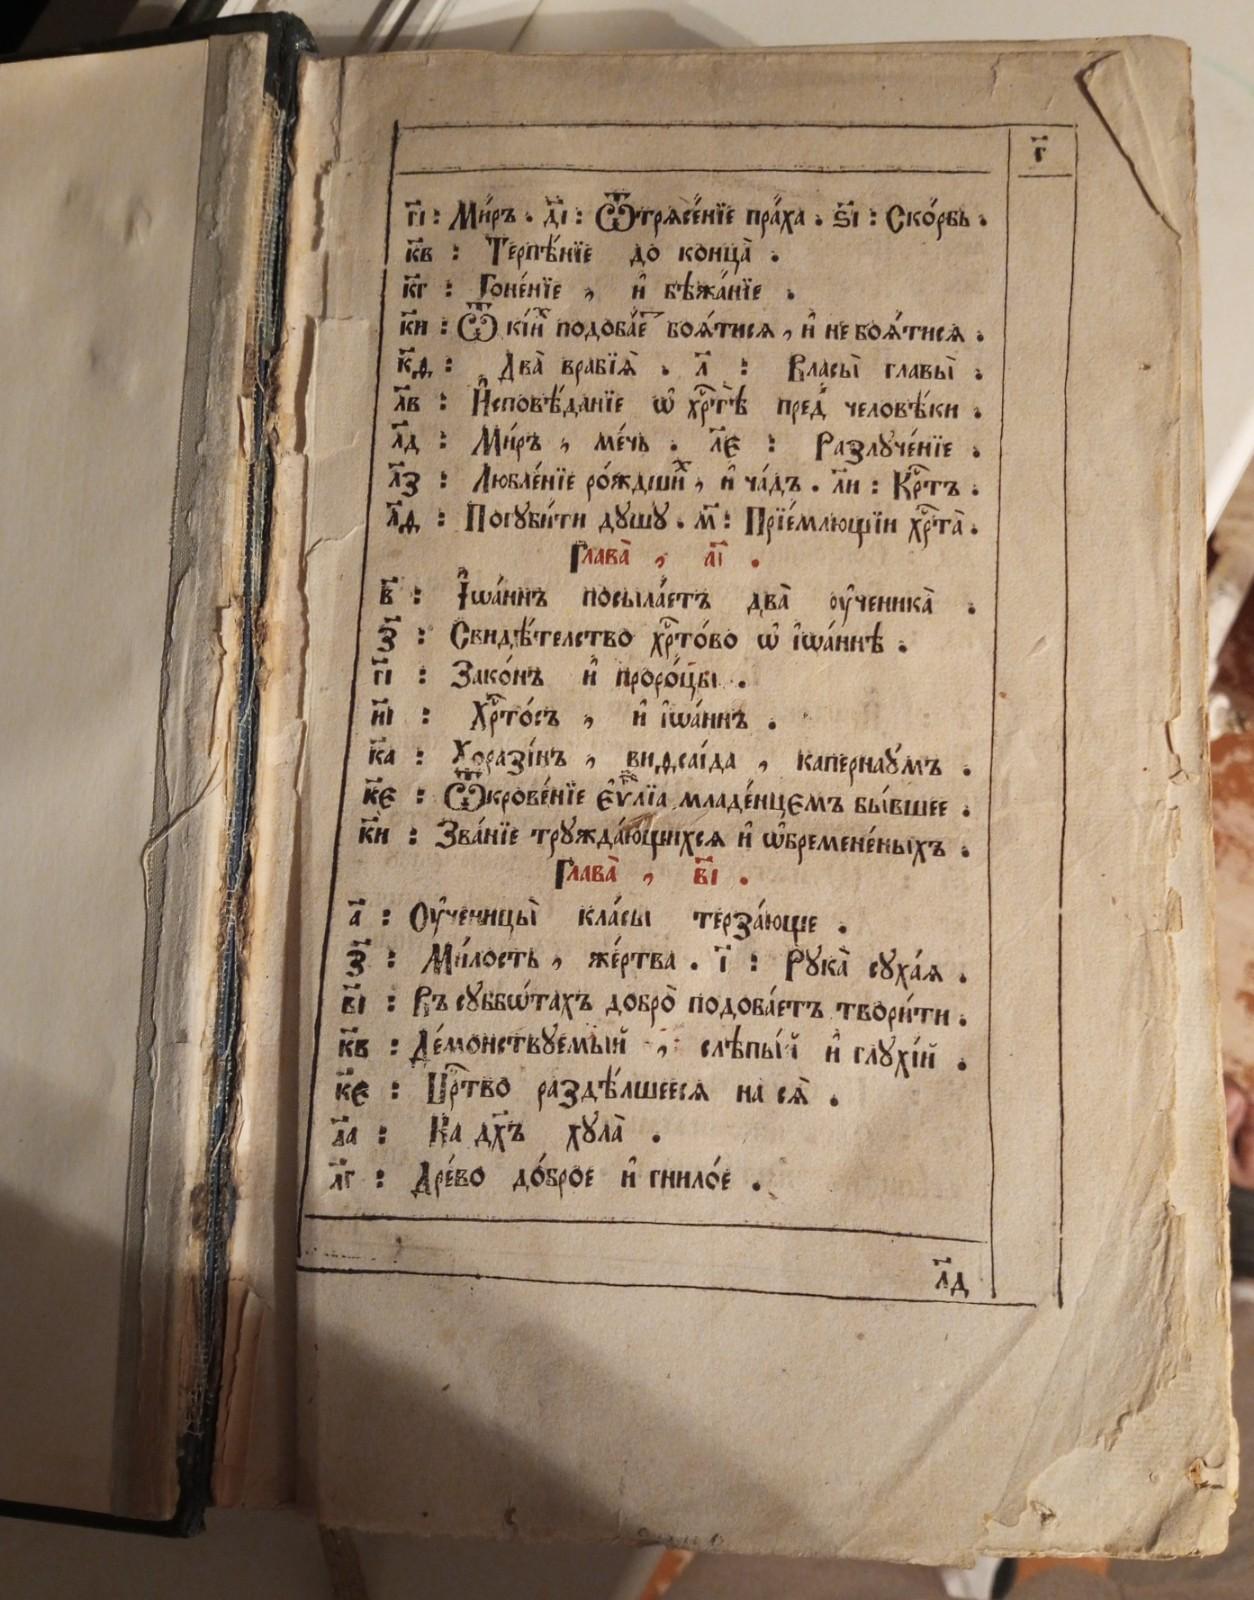 г҃
г҃і : Ми́ръ . д҃і : Ѿтрѧсе́нїе пра́ха . ѕ҃і : Ско́рбь .
к҃в : Терпѣ́нїе до конца̀ .
к҃г : Гоне́нїе , и҆ бѣжа́нїе .
к҃и : Ѿ кі́иⷯ подоба́еⷮ боѧ́тисѧ , и҆ не боѧ́тисѧ .
к҃ѳ : Два̀ врабїѧ̀ . л҃ : Власы̀ главы̀ .
л҃в : И҆сповѣ́данїе ѡ҆ хрⷭ҇тѣ̀ преⷣ человѣ́ки .
л҃д : Ми́ръ , ме́чь . л҃є : Разлꙋче́нїе .
л҃з : Любле́нїе ро́ждшиⷯ , и҆ ча́дъ . л҃и : Крⷭ҇тъ .
л҃ѳ : Погꙋби́ти дꙋшꙋ . м҃ : Прїе́млющїи хрⷭ҇та̀ .
Глава̀ , а҃і .
в҃ : І҆ѡа́ннъ посыла́етъ два̀ ᲂу҆ченика̀ .
з҃ : Свидѣ́телство хрⷭ҇то́во ѡ҆ і҆ѡа́ннѣ .
г҃і : Зако́нъ и҆ проро́цы .
и҃і : Хрⷭ҇то́съ , и҆ і҆ѡа́ннъ .
к҃а : Хоразі́нъ , виѳсаі́да , капернаꙋ́мъ .
к҃є : Ѿкрове́нїе є҆ѵⷢ҇лїа младе́нцємъ бы́вшее .
к҃и : Зва́нїе трꙋжда́ющихсѧ и҆ ѡ҆бремене́ныхъ .
Глава̀ , в҃і .
а҃ : Оу҆ченицы̀ кла́сы терза́юще .
з҃ : Ми́лость , же́ртва . і҃ : Рꙋка̀ сꙋха́ѧ .
в҃і : Въ сꙋббѡ́тахъ добро̀ подоба́етъ твори́ти .
к҃в : Де́монствꙋемый , слѣпы́й и҆ глꙋхі́й .
к҃є : Црⷭ҇тво раздѣ́лшеесѧ на сѧ̀ .
л҃а : На дх҃ъ хꙋла̀ .
л҃г : Дре́во до́брое и҆ гнило́е .
л҃д